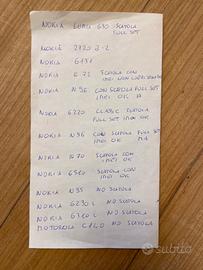 NOKIA LUMIA 630 SCATOLA
FULL SET
NOKIA 2720 A-2
NOKIA 6131
NOKIA E72 SCATOLA CON
IMEI NON
NOKIA N95 CON SCATOLA FULL SET
IMEI OK
NOKIA 6220 CLASSIC SCATOLA
FULL SET IMEI OK
NOKIA N96 CON SCATOLA FULL SET
IMEI OK
NOKIA N70 SCATOLA CON
IMEI OK
NOKIA SCATOLA CON
IMEI OK
NOKIA N95 NO SCATOLA
NOKIA 6230 i NO SCATOLA
NOKIA 6310 i NO SCATOLA
MOTOROLA NO SCATOLA
subito